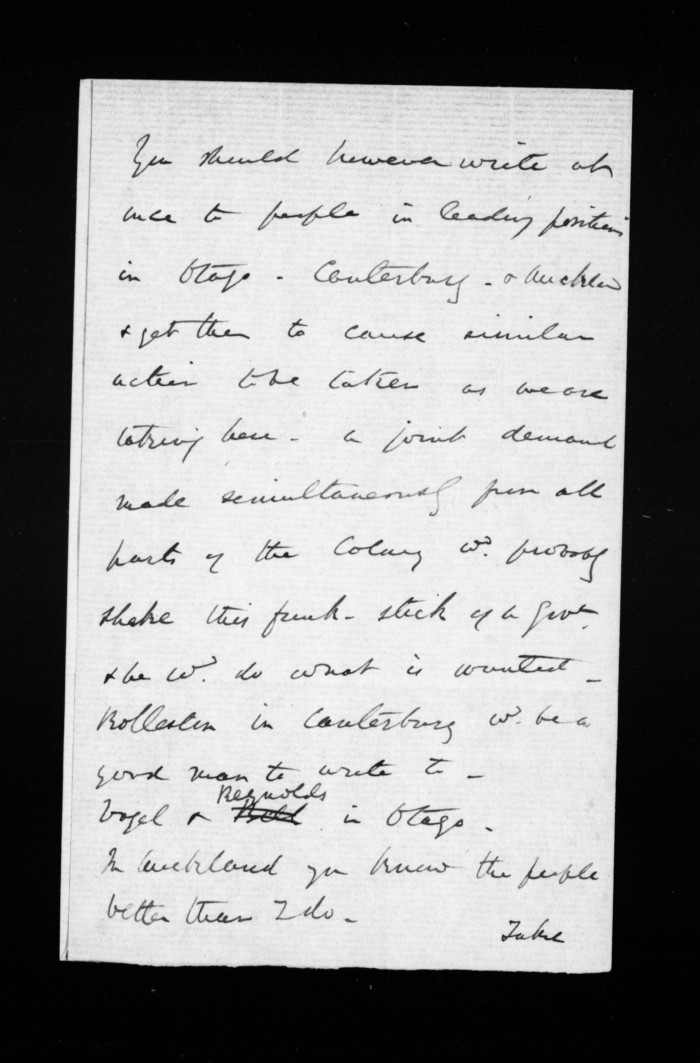 You should however write at
once to people in leading positions
in Otago - Canterbury - & Auckland
& get them to cause similar
action to be taken as we are
taking here - a joint demand
made simultaneously from all
parts of the Colony wd. probably
shake this funk-stick of a Govr.
& he wd. do what is wanted -
Rolleston in Canterbury wd. be a
good man to write to -
Vogel & Reynolds in Otago -
In Auckland you know the people
better than I do -
Take